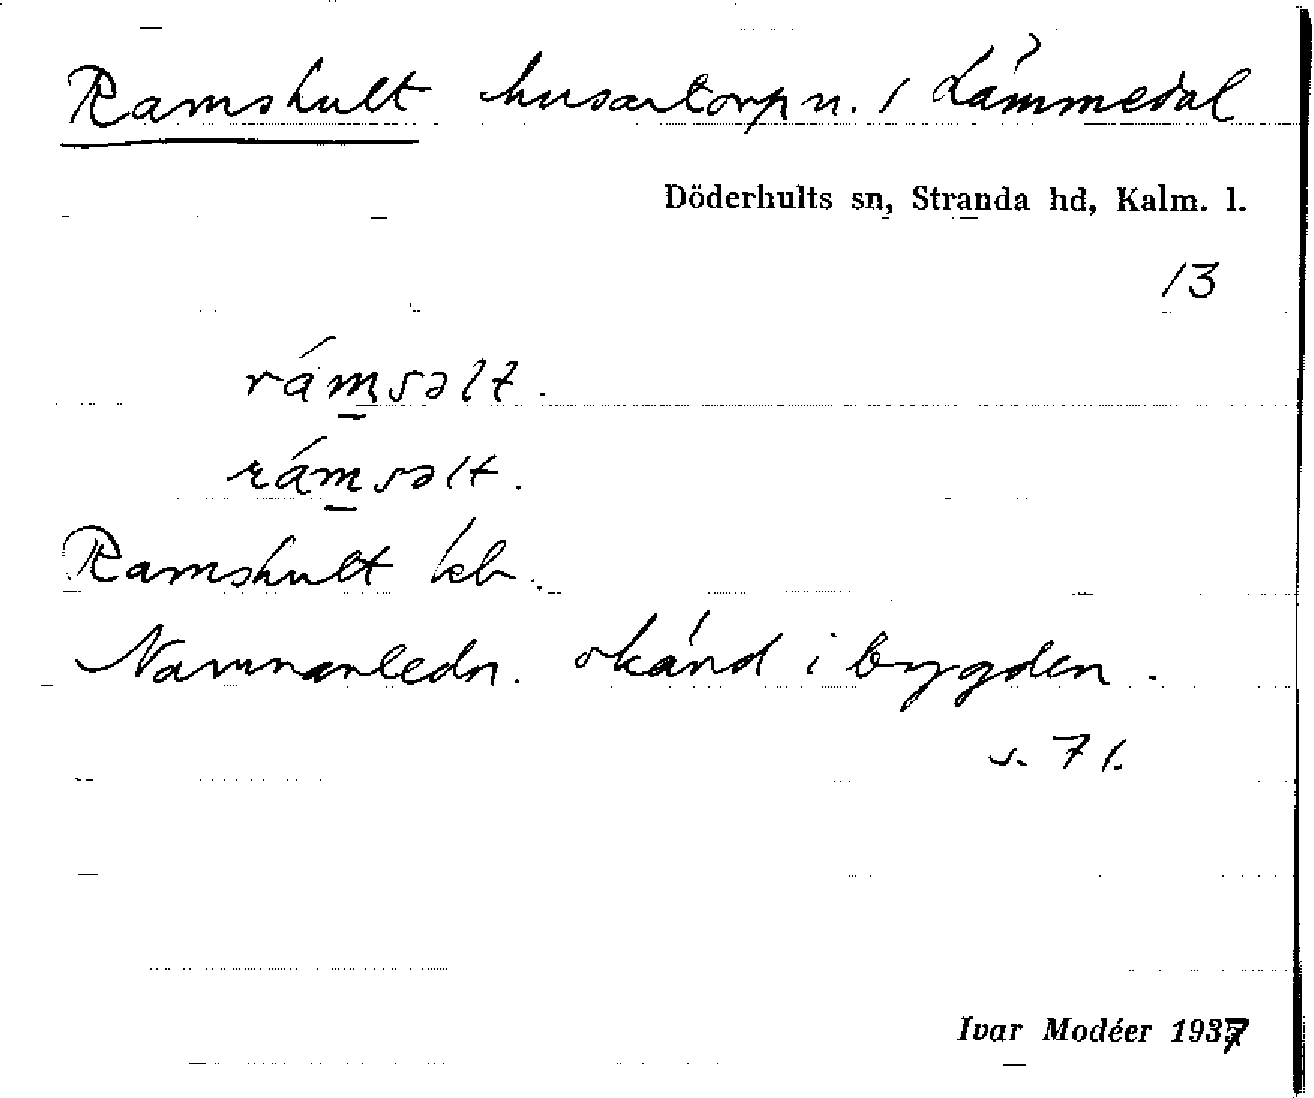 Ramshult husartorp n. / Lämmedal
Döderhults sn, Stranda hd, Kalm. l.
13
rámsəlt.
rámsəlt.
Ramshult kb.
Namnanledn. okänd i bygden.
s. 71.
Ivar Modéer 1937